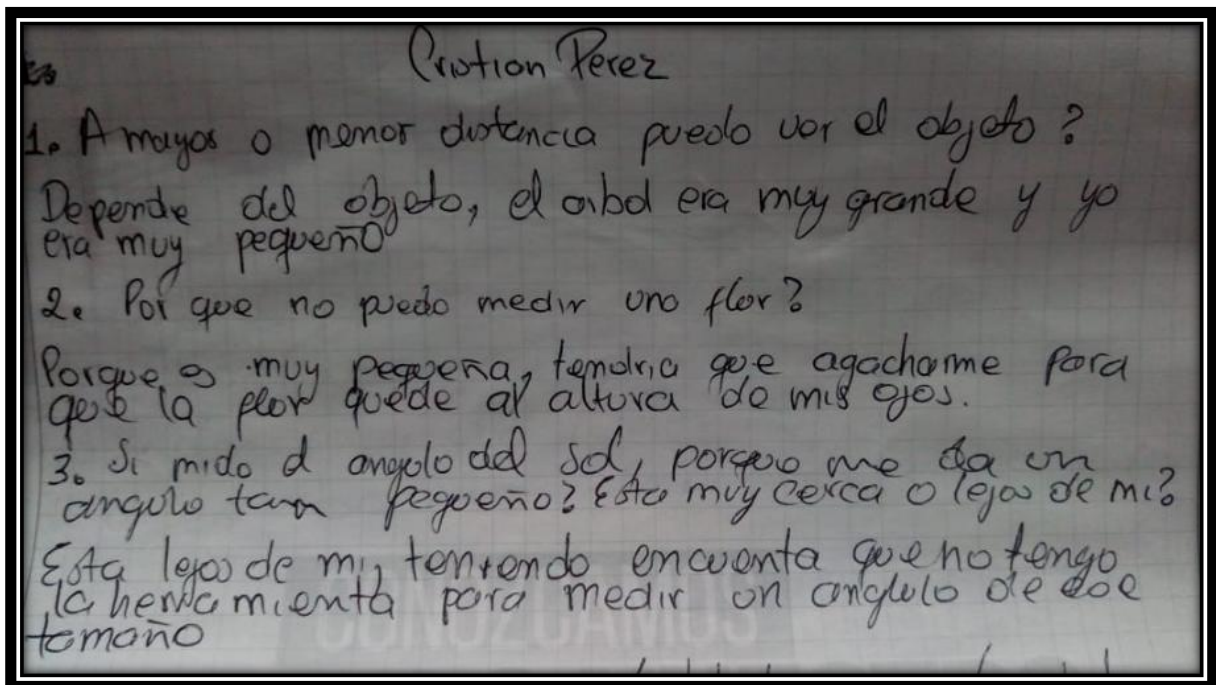 Cristian Perez
1. A mayor o menor distancia puedo ver el objeto?
Depende del objeto, el arbol era muy grande y yo
era muy pequeño
2. Por que no puedo medir una flor?
Porque es muy pequeña, tendria que agacharme para
que la flor quede al altura de mis ojos.
3. Si mido el angulo del sol, porque me da un
angulo tan pequeño? Esta muy cerca o lejos de mi?
Esta lejos de mi, teniendo encuenta que no tengo
la herramienta para medir un angulo de ese
tamaño
CONOZCAMOS